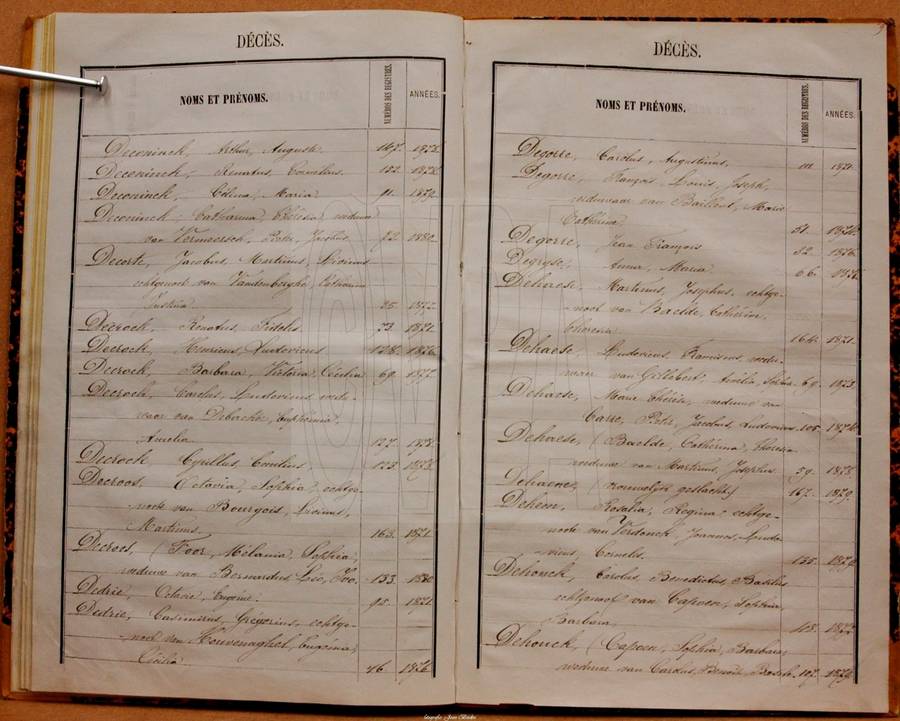 DÉCÈS.
NOMS ET PRÉNOMS. NUMÉROS DES REGISTRES. ANNÉES.
Deconinck, Arthur, Auguste. 147. 1872.
Deconinck, Renatus, Cornelius. 122. 1878.
Deconinck, Celina, Maria 91. 1879.
Deconinck, Catharina Theresia, weduwe
van Vermeersch, Pieter, Jacobus 92. 1880.
Decorte, Jacobus, Martinus,
echtgenoot van Vandenberghe, Catharina
Justina. 25. 1872.
Decrock, Renatus, 73. 1871.
Decrock, Henricus, Ludovicus 128. 1876.
Decrock, Barbara, Victoria, Cecilia 69. 1877.
Decrock, Carolus, Ludovicus wedu-
naar van Euphémie,
Amelia 127. 1878.
Decrock Cyrillus, Camilius. 123. 1878.
Decroos, Octavia, Sophia, echtge-
noote van Bourgois, Lucinus,
Martinus. 163. 1871.
Decroos, (Foor, Mélanie, Sophia,
weduwe van Bernardus Léo, 133. 1880.
Dedrie, Octavie, Eugenie. 95. 1871.
Dedrie, Casimirus, Grégorius, echtge-
noot van Houvenaghel, Eugenia,
Cécilia 46 1876.
DÉCÈS.
NOMS ET PRÉNOMS. NUMÉROS DES REGISTRES. ANNÉES.
Degorre, Carolus, Augustinus. 111. 1871.
Degorre, François Louis, Joseph,
weduwaar van Baillent, Marie
Catherina 31. 1874.
Degorre, Jean François 32. 1876.
Degryse, Anna, Maria 66.
Dehaese, Martinus, Josephus, echtge-
noot van Baelde, Catherina,
Theresia 164. 1871.
Dehaese, Ludovicus, Franciscus, wedu-
naar van Gillebert, Amélia, 69. 1873.
Dehaese, Marie Thérèse, weduwe van
Carre, Pieter, Jacobus, Ludovicus 105. 1876.
Dehaese, (Baelde, Catherina, Theresia
weduwe van Martinus, Josephus. 59. 1878.
Dehaene, (vrouwelijk geslacht) 167. 1879.
Dehem, Rosalia, Regina, echtge-
noote van Verdonck, Joannes, Ludo-
vicus, Cornelis. 155. 1879.
Dehouck, Carolus, Benedictus, Basilius
echtgenoot van Capoen, Sophia
Barbara. 1877.
Dehouck, (Capoen, Sophia, Barbara,
weduwe van Carolus, Benoît, 107. 1878.